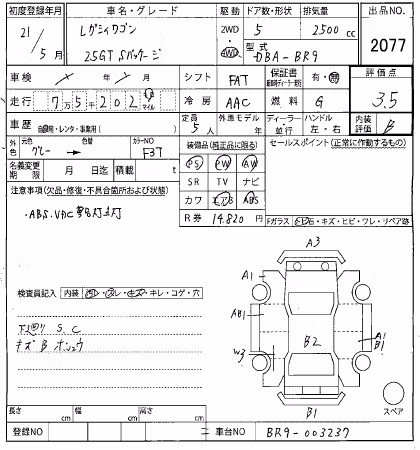 初度登録年月 車名・グレード 駆動 ドア数・形状 排気量 出品NO.
21/5月 レガシィワゴン 2WD 4WD 5 2500cc
2.5GT Sパッケージ 型式 DBA-BR9 2077
車検 / / シフト FAT 保証書 有・無 評価点
走行 7万5千202 マイル 冷房 AAC 燃料 G 3.5
車歴 自家用・レンタ・事業用( ) 定員 5人 外車モデル 年 ディーラー 並行 ハンドル 左・右 内装評価 B
外色 元色 グレー → 色替 カラーNO F37 装備品(純正品に限る) セールスポイント(正常に作動するもの)
名義変更期限 月 日迄 積載 t PS PW AW
注意事項(欠品・修復・不具合箇所および状態) SR TV ナビ
・ABS.VDC警告灯点灯 カワ エアB ABS
R券 14.820円 Fガラス 飛石・キズ・ヒビ・ワレ・リペア跡
A3
A1
AB1 B2 A1 B1
W3
B1
スペア
検査員記入 内装 ・スレ・キズ・キレ・コゲ・穴
下廻り S.C
キズ B ホシュウ
長さ cm 幅 cm 高さ cm
登録NO 車台NO BR9-003237